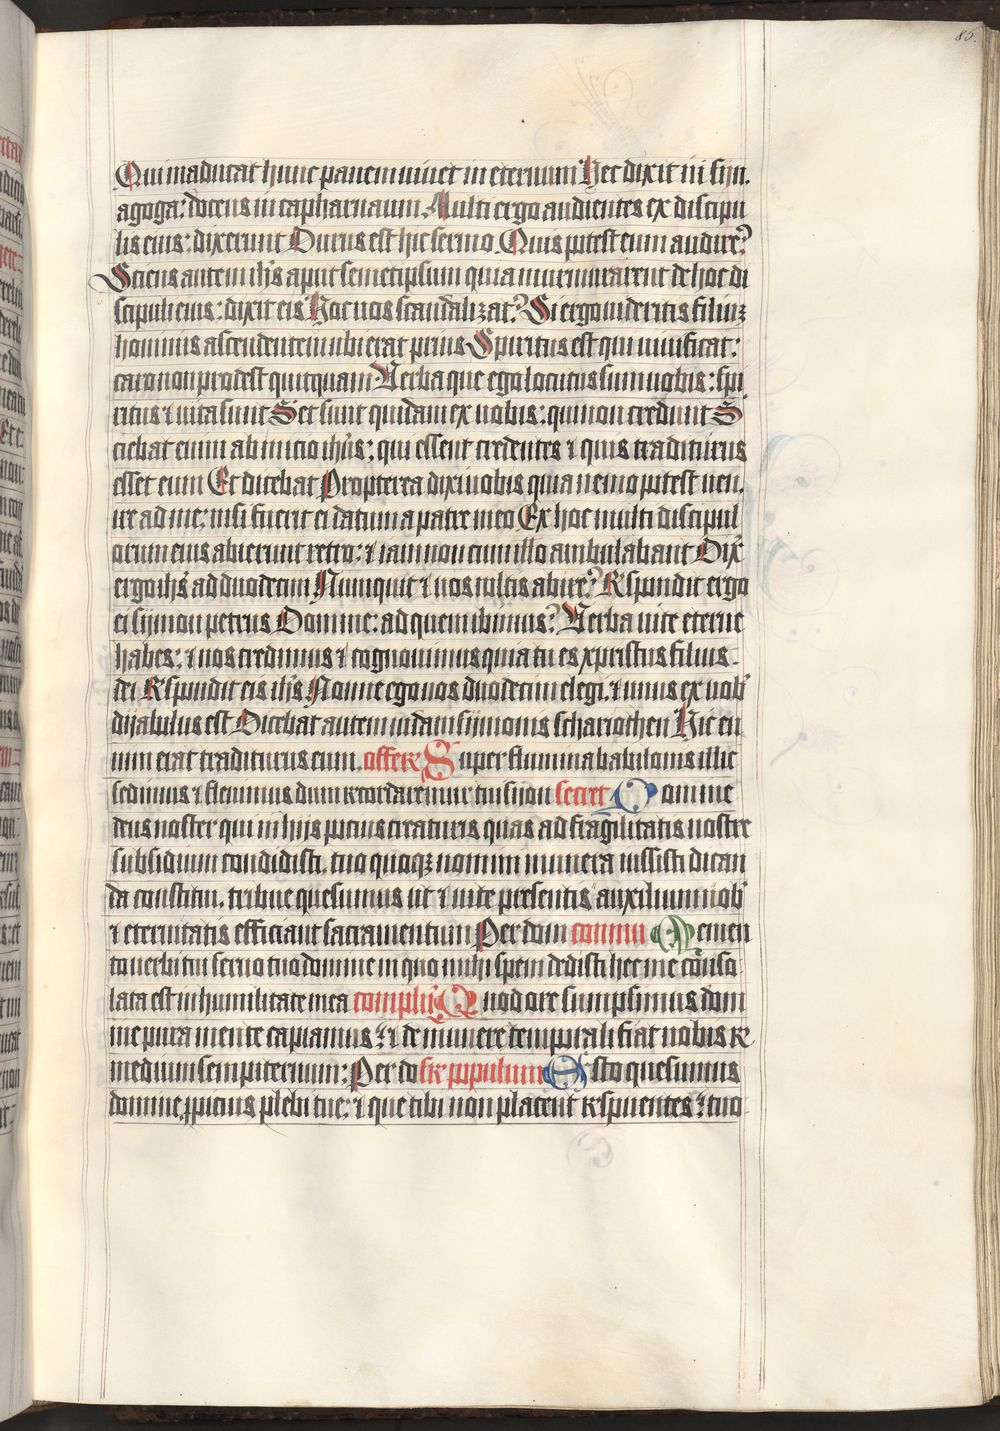 86.
Qui maducat hunc panem uiuet in eternum Hec dixit in sÿn.
agoga: docens in capharnaum. Multi ergo audientes ex discipu
lis eius: dixerunt Durus est hic sermo. Quis potest eum audire?
Sciens autem ihs aput semetipsum quia murmurarent de hoc di
scipuli eius: dixit eis Hoc uos scandalizat? Si ergo uideritis filiuz
hominis ascendentem ubi erat prius Spiritus est qui uiuificat:
caro non prodest quicquam Verba que ego locutus sum uobis: spi
ritus ⁊ uita sunt Set sunt quidam ex uobis: qui non credunt S
ciebat enim ab inicio ihus: qui essent credentes ⁊ quis traditurus
esset eum Et dicebat Propterea dixi uobis quia nemo potest uen.
ire ad me: nisi fuerit ei datum a patre meo Ex hoc multi discipul
orum eius abierunt retro: ⁊ iam non cum illo ambulabant Dix
ergo ihs ad duodecim Nunquit ⁊ uos uultis abire? Rspondit ergo
ei sÿmon petrus Domine: ad quem ibimus? Verba uite eterne
habes: ⁊ nos credimus ⁊ cognouimus quia tu es xpristus filius.
dei Rspondit eis ihs Nonne ego uos duodecim elegi. ⁊ unus ex uob
dÿabulus est Dicebat autem iudam sÿmonis schariothen Hic en
nim erat traditurus eum. offere Super flumina babilonis illic
sedimus ⁊ fleuimus dum recordaremur tui sÿon secret Domine
deus noster qui in hÿs pocius creaturis quas ad fragilitatis nostre
subsidium condidisti. tuo quoqz nomini munera iussisti dican
da constitui. tribue quesumus ut ⁊ uite presentis auxilium nob
⁊ eternitatis efficiant sacramentum Per dom commu Memen
to uerbi tui seruo tuo domine in quo mihi spem dedisti hec me conso
lata est in humilitate mea complu Quod ore sumpsimus dom
ine pura mente capiamus: ⁊ de munere temporali fiat nobis re
medium sempiternum: Per do sr populum Esto quesumus
domine ꝓpicius plebi tue: ⁊ que tibi non placent rspuentes: tuo